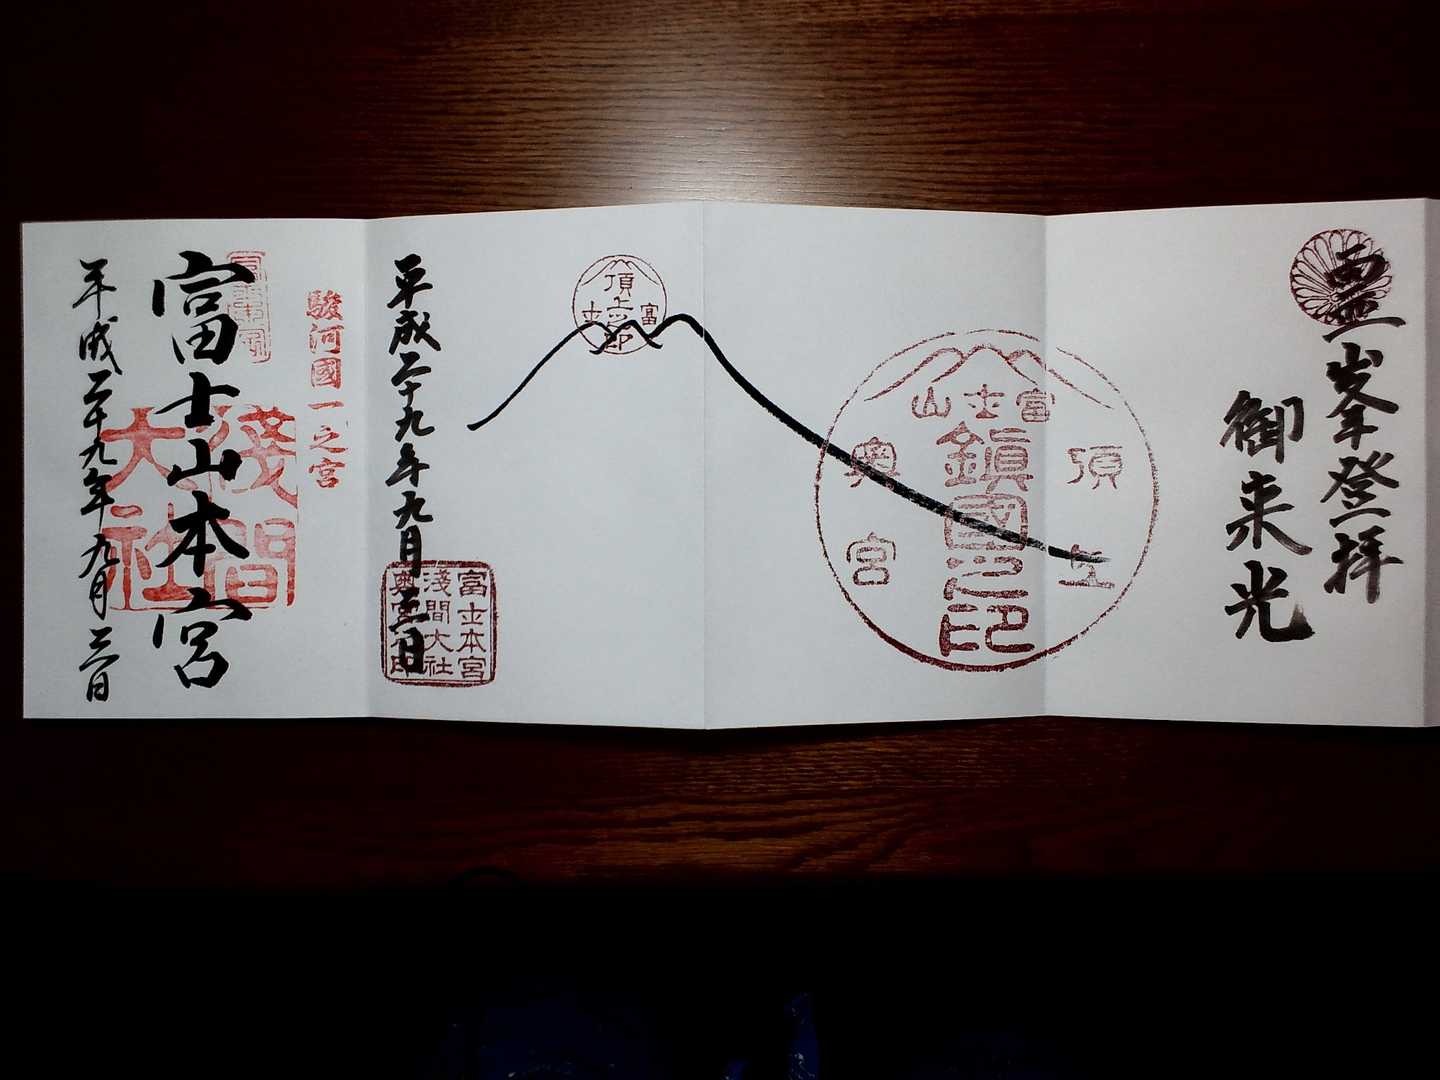 靈峯登拝
御来光
頂上
富士山
奥宮
鎮國之印
頂上之印
富士
平成二十九年九月三日
富士本宮
淺間大社
奥宮之印
駿河國一之宮
富士山本宮
淺間
大社
平成二十九年九月三日